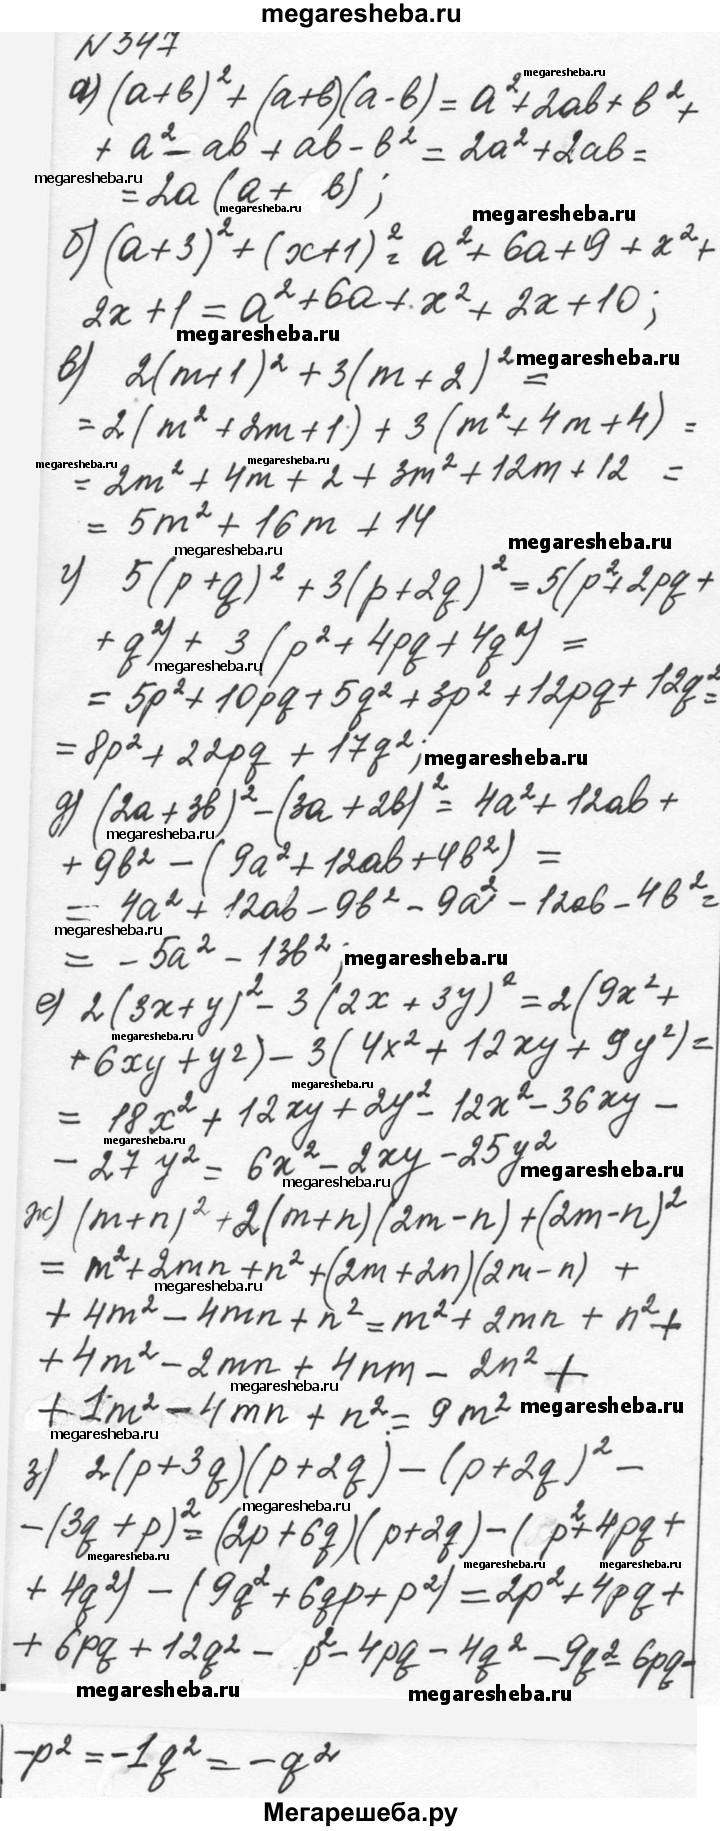 megaresheba.ru
N 347
а) (a+b)² + (a+b)(a-b) = a² + 2ab + b² +
+ a² - ab + ab - b² = 2a² + 2ab =
= 2a (a + b) ;
б) (a+3)² + (x+1)² = a² + 6a + 9 + x² +
2x + 1 = a² + 6a + x² + 2x + 10 ;
в) 2(m+1)² + 3(m+2)² =
= 2(m² + 2m + 1) + 3(m² + 4m + 4) =
= 2m² + 4m + 2 + 3m² + 12m + 12 =
= 5m² + 16m + 14
г) 5(p+q)² + 3(p+2q)² = 5(p² + 2pq +
+ q²) + 3 (p² + 4pq + 4q²) =
= 5p² + 10pq + 5q² + 3p² + 12pq + 12q² =
= 8p² + 22pq + 17q² ;
д) (2a+3b)² - (3a+2b)² = 4a² + 12ab +
+ 9b² - (9a² + 12ab + 4b²) =
= 4a² + 12ab - 9b² - 9a² - 12ab - 4b² =
= -5a² - 13b² ;
е) 2(3x+y)² - 3(2x+3y)² = 2(9x² +
+ 6xy + y²) - 3(4x² + 12xy + 9y²) =
= 18x² + 12xy + 2y² - 12x² - 36xy -
- 27y² = 6x² - 2xy - 25y²
ж) (m+n)² + 2(m+n)(2m-n) + (2m-n)²
= m² + 2mn + n² + (2m+2n)(2m-n) +
+ 4m² - 4mn + n² = m² + 2mn + n² +
+ 4m² - 2mn + 4nm - 2n² +
+ 1m² - 4mn + n² = 9m²
з) 2(p+3q)(p+2q) - (p+2q)² -
- (3q+p)² = (2p+6q)(p+2q) - (p² + 4pq +
+ 4q²) - (9q² + 6qp + p²) = 2p² + 4pq +
+ 6pq + 12q² - p² - 4pq - 4q² - 9q² - 6pq -
-p² = -1q² = -q²
Мегарешеба.ру